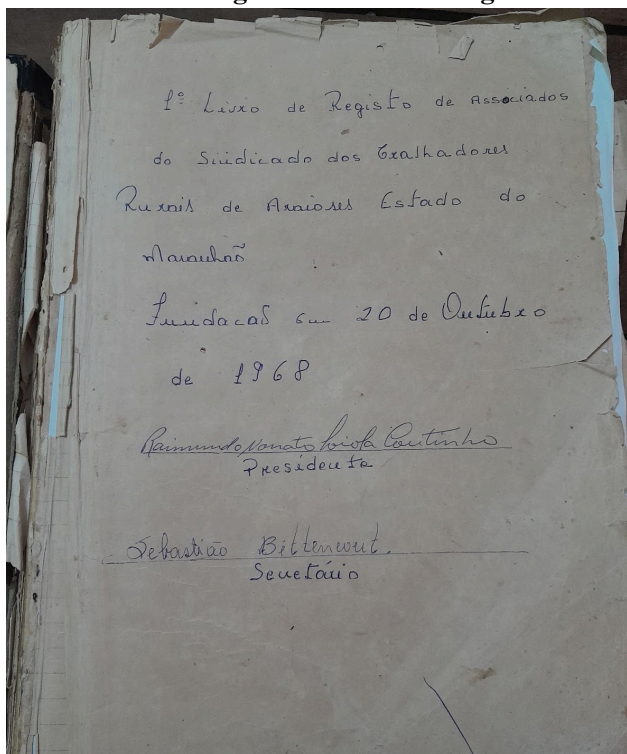 1º Livro de Registo de Associados
do Siidicado dos Tralhadores
Rurais de Araioses Estado do
Maranhão
Fundacaõ em 20 de Outubro
de 1968
Raimundo Nonato Loiola Coutinho
Presidente
Sebastião Bittencourt.
Secretário